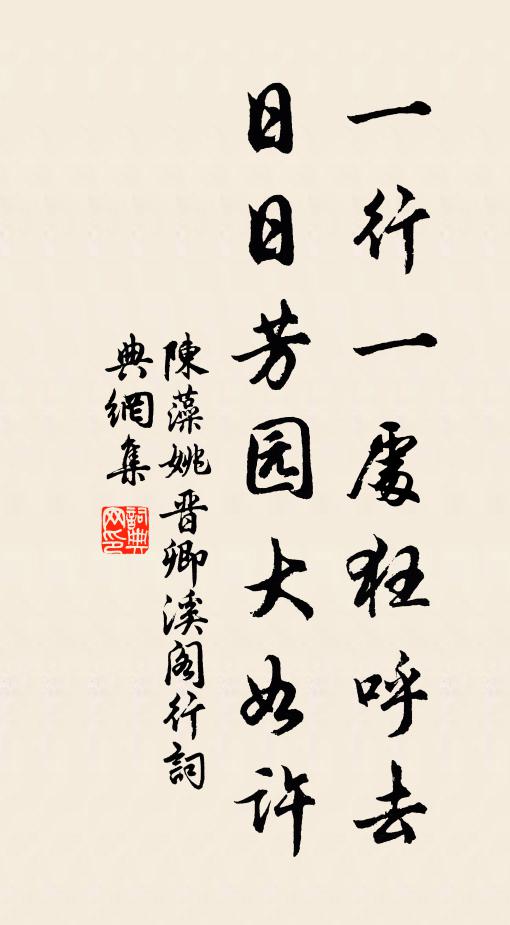 一行一處狂呼去
日日芳园大如许
陳藻姚晋卿溪阁行詞
典網集
詞典网印